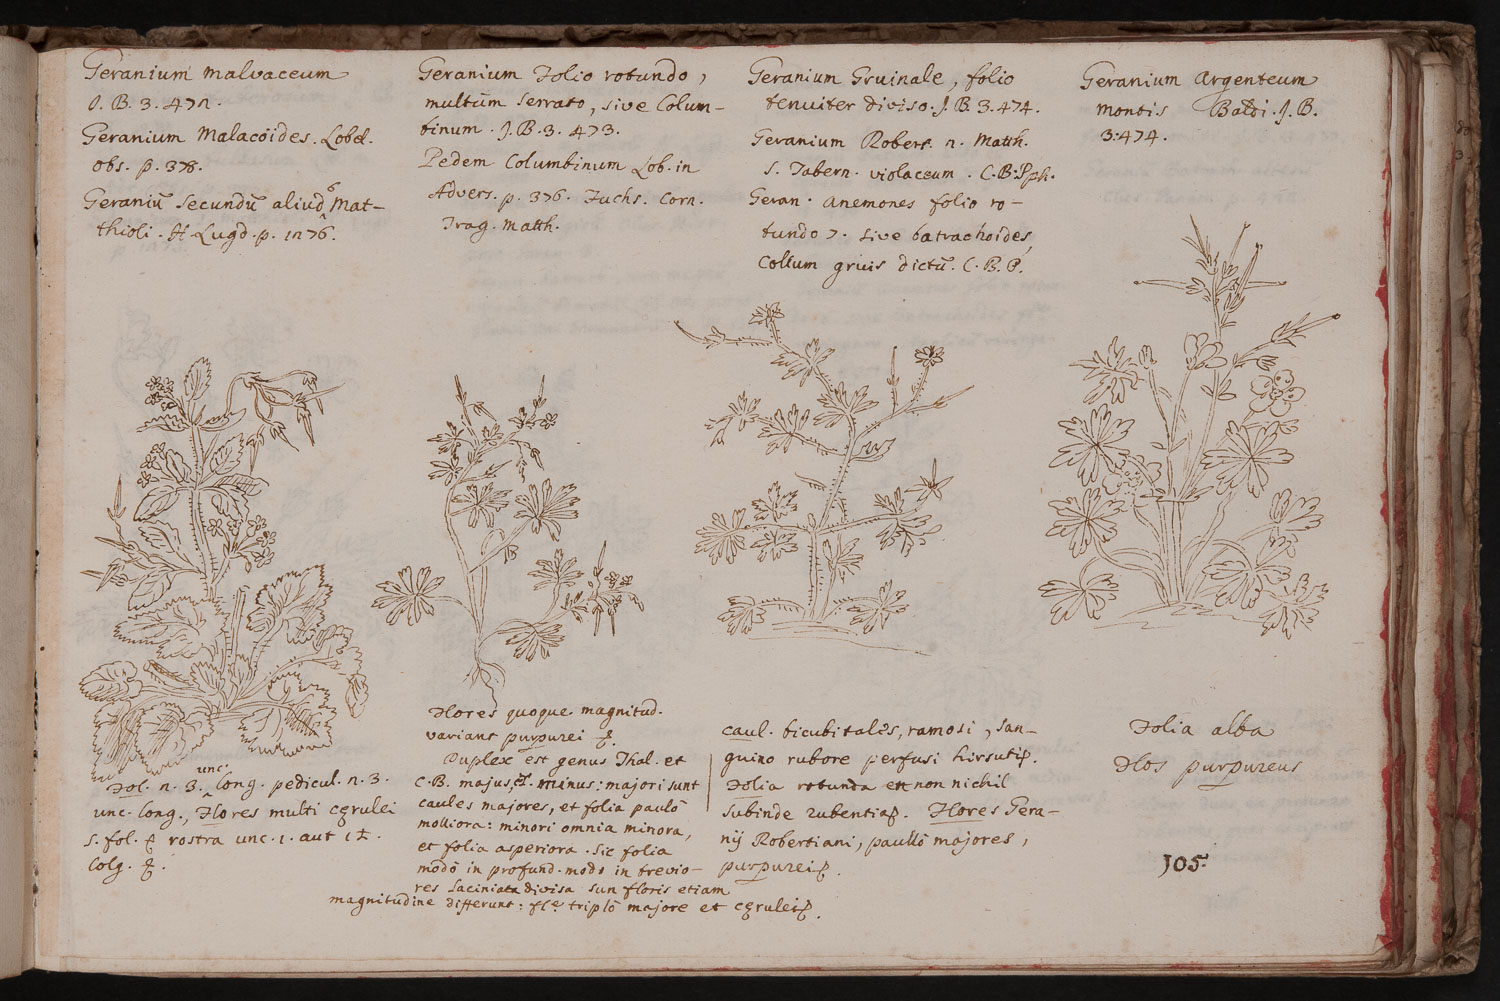 Geranium malvaceum
J. B. 3. 472.
Geranium Malacoides. Lobel.
obs. p. 378.
Geraniū secundū aliud Mat-
thioli. H. Lugd. p. 1276.
Geranium Folio rotundo,
multum serrato, sive Colum-
binum. J. B. 3. 473.
Pedem Columbinum Lob. in
Advers. p. 376. Fuchs. Corn.
Trag. Matth.
Geranium Gruinale, folio
tenuiter diviso. J. B. 3. 474.
Geranium Robert. 2. Matth.
s. Tabern. violaceum. C. B. Pph.
Geran. anemones folio ro-
tundo 7. sive batrachoides,
Collum gruis dictū. C. B. P.
Geranium Argenteum
montis Baldi. J. B.
3. 474.
Fol. n. 3. unc. long. pedicul. n. 3.
unc. long., Flores multi cęrulei
5. fol. rostra unc. 1. aut 1
Colg.
Flores quoque magnitud.
variant purpurei
Duplex est genus Thal. et
C. B. majus, et minus: majori sunt
caules majores, et folia paulò
molliora: minori omnia minora,
et folia asperiora. Sic folia
modò in profund. modo in brevio-
res laciniata divisa sun floris etiam
magnitudine differunt: triplò majore et cęrulei
caul. bicubitales, ramosi, san-
guino rubore perfusi hirsuti
Folia rotunda et non nichil
subinde rubentia. Flores Gera-
nij Robertiani, paullò majores,
purpurei
Folia alba
Flos purpureus
105.